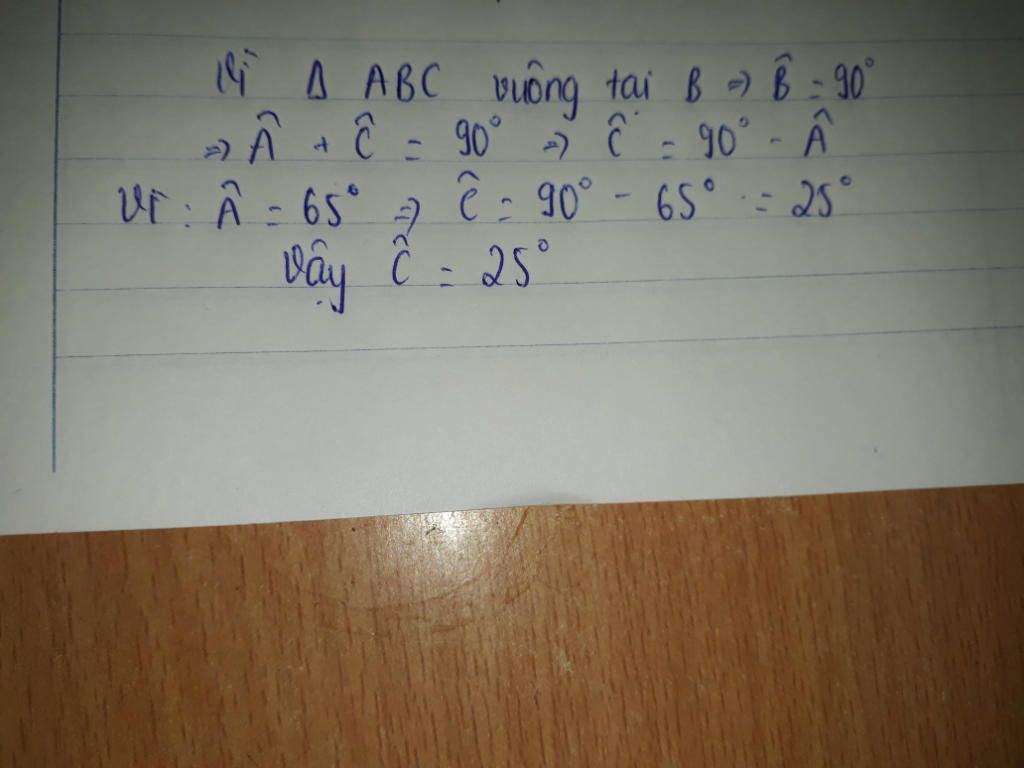 Vì Δ ABC vuông tại B => B̂ = 90°
=> Â + Ĉ = 90° => Ĉ = 90° - Â
Vì : Â = 65° => Ĉ = 90° - 65° = 25°
Vậy Ĉ = 25°